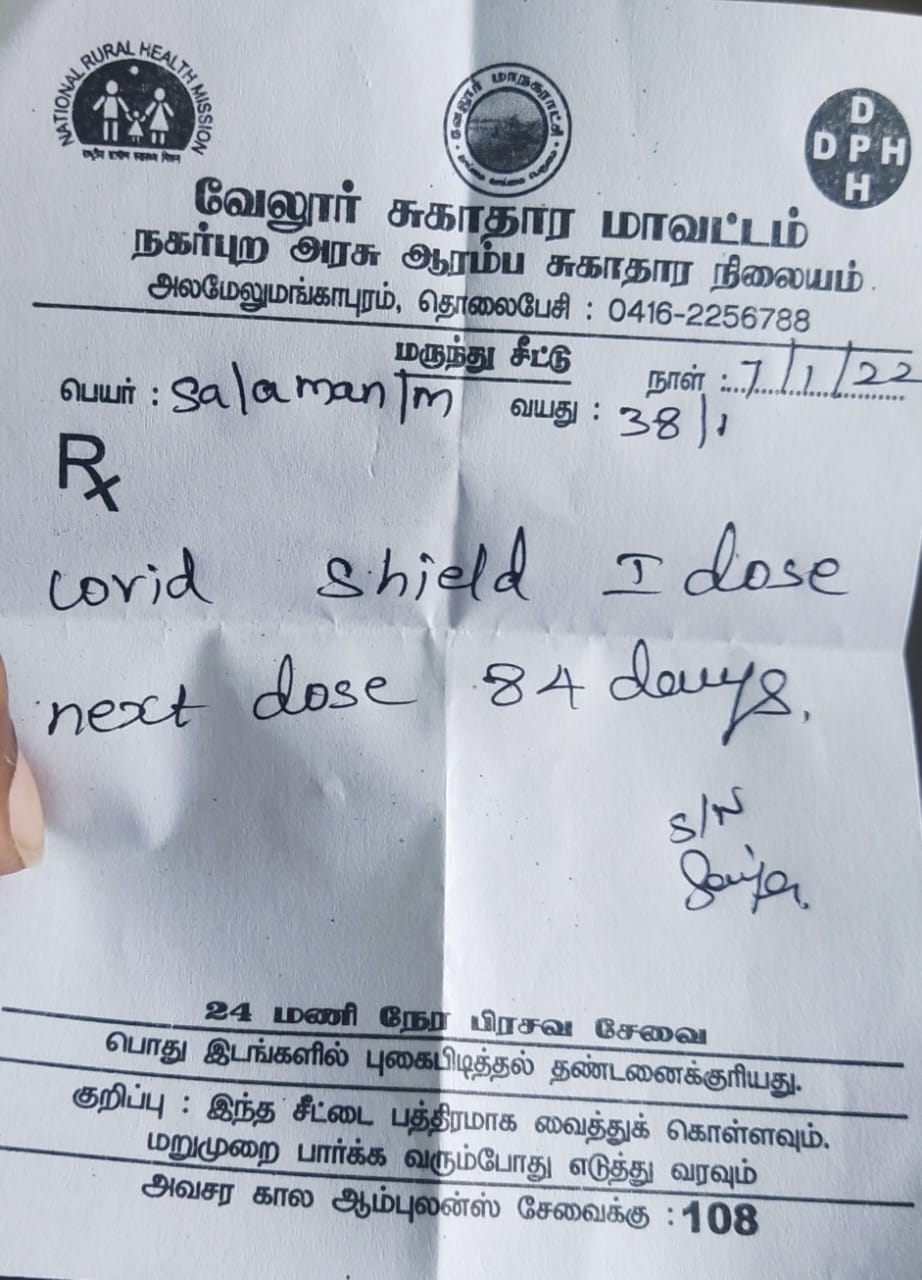 NATIONAL RURAL HEALTH MISSION
राष्ट्रीय ग्रामीण स्वास्थ्य मिशन
வேலூர் மாநகராட்சி
D
DPH
H
வேலூர் சுகாதார மாவட்டம்
நகர்புற அரசு ஆரம்ப சுகாதார நிலையம்.
அலமேலுமங்காபுரம், தொலைபேசி : 0416-2256788
மருந்து சீட்டு
பெயர் : Salaman/m வயது : 38/ நாள் : 7/1/22
Rx
covid shield I dose
next dose 84 days.
S/N
24 மணி நேர பிரசவ சேவை
பொது இடங்களில் புகைபிடித்தல் தண்டனைக்குரியது.
குறிப்பு : இந்த சீட்டை பத்திரமாக வைத்துக் கொள்ளவும்.
மறுமுறை பார்க்க வரும்போது எடுத்து வரவும்
அவசர கால ஆம்புலன்ஸ் சேவைக்கு : 108